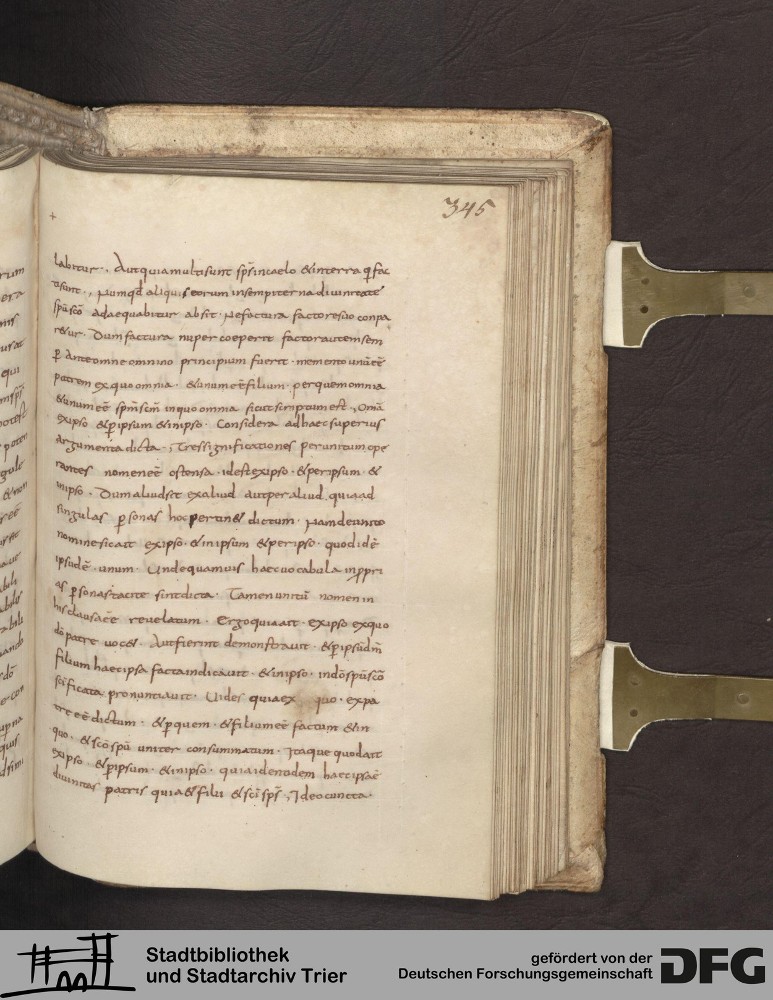 345
labitur. Aut quia multi sunt sp̄s in caelo & in terra q̄ fac
ta sunt., Numqd̄ aliquis eorum in sempiterna divinitate
sp̄u sc̄o adaequabitur absit. Ne factura factori suo conpa
r&ur. Dum factura nuper coeperit factor autem sem
p̄ ante omne omnino principium fuerit. memento unū eē
patrem ex quo omnia. & unum eē filium. per quem omnia
& unum eē sp̄m sc̄m in quo omnia sicut scriptum est., Om̄a
ex ipso & p̄ ipsum & in ipso. Considera ad haec superius
argumenta dicta., Tres significationes per unitum ope
rantes nomen eē ostensa. id est ex ipso. & per ipsum. &
in ipso. Dum aliud sit ex aliud aut per aliud quia ad
singulas p̄sonas hoc pertin& dictum. Nam de unito
nomine sic ait ex ipso. & in ipsum & per ipso. quod id ē
ipsud ē. unum. Unde quamvis haec vocabula in p̄pri
as p̄sonas tacite sint dicta. Tamen unitū nomen in
his clausa eē revelatum. Ergo quia ait. ex ipso ex quo
dō patre voc&. Aut fierint demonstravit. & p̄ ipsud in
filium haec ipsa facta indicavit. & in ipso. in dō sp̄u sc̄o
sc̄ificata pronuntiavit. Vides quia ex quo. ex pa
tre eē dictum. & p̄ quem. & filium eē factum & in
quo. & sc̄o sp̄u uniter consummatum. Itaque quod ait
ex ipso. & p̄ ipsum. & in ipso. quia identidem haec ipsa ē
divinitas patris quia & filii & sc̄i sp̄s., Ideo cuncta.
Stadtbibliothek
und Stadtarchiv Trier
gefördert von der
Deutschen Forschungsgemeinschaft
DFG